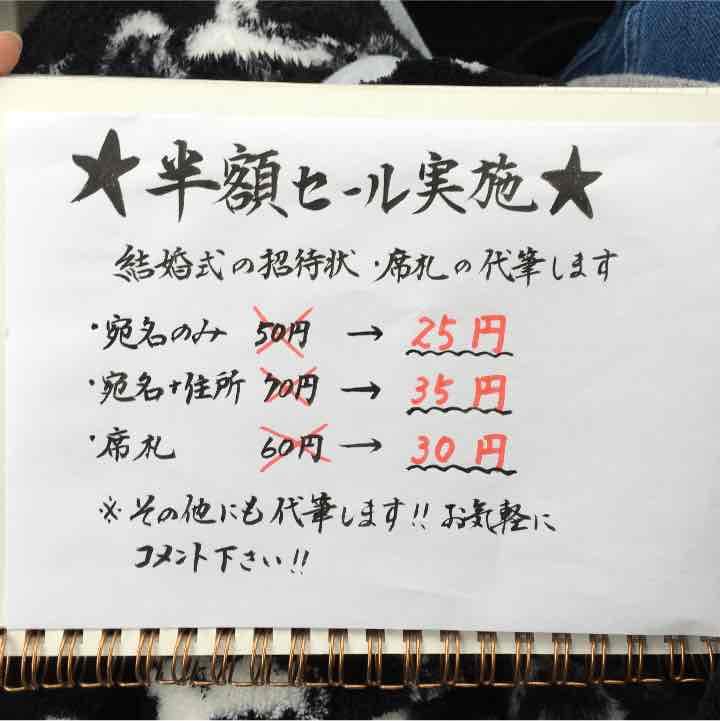 ★半額セール実施★
結婚式の招待状・席札の代筆します
・宛名のみ 50円 → 25円
・宛名+住所 70円 → 35円
・席札 60円 → 30円
※その他にも代筆します!! お気軽に
コメント下さい!!